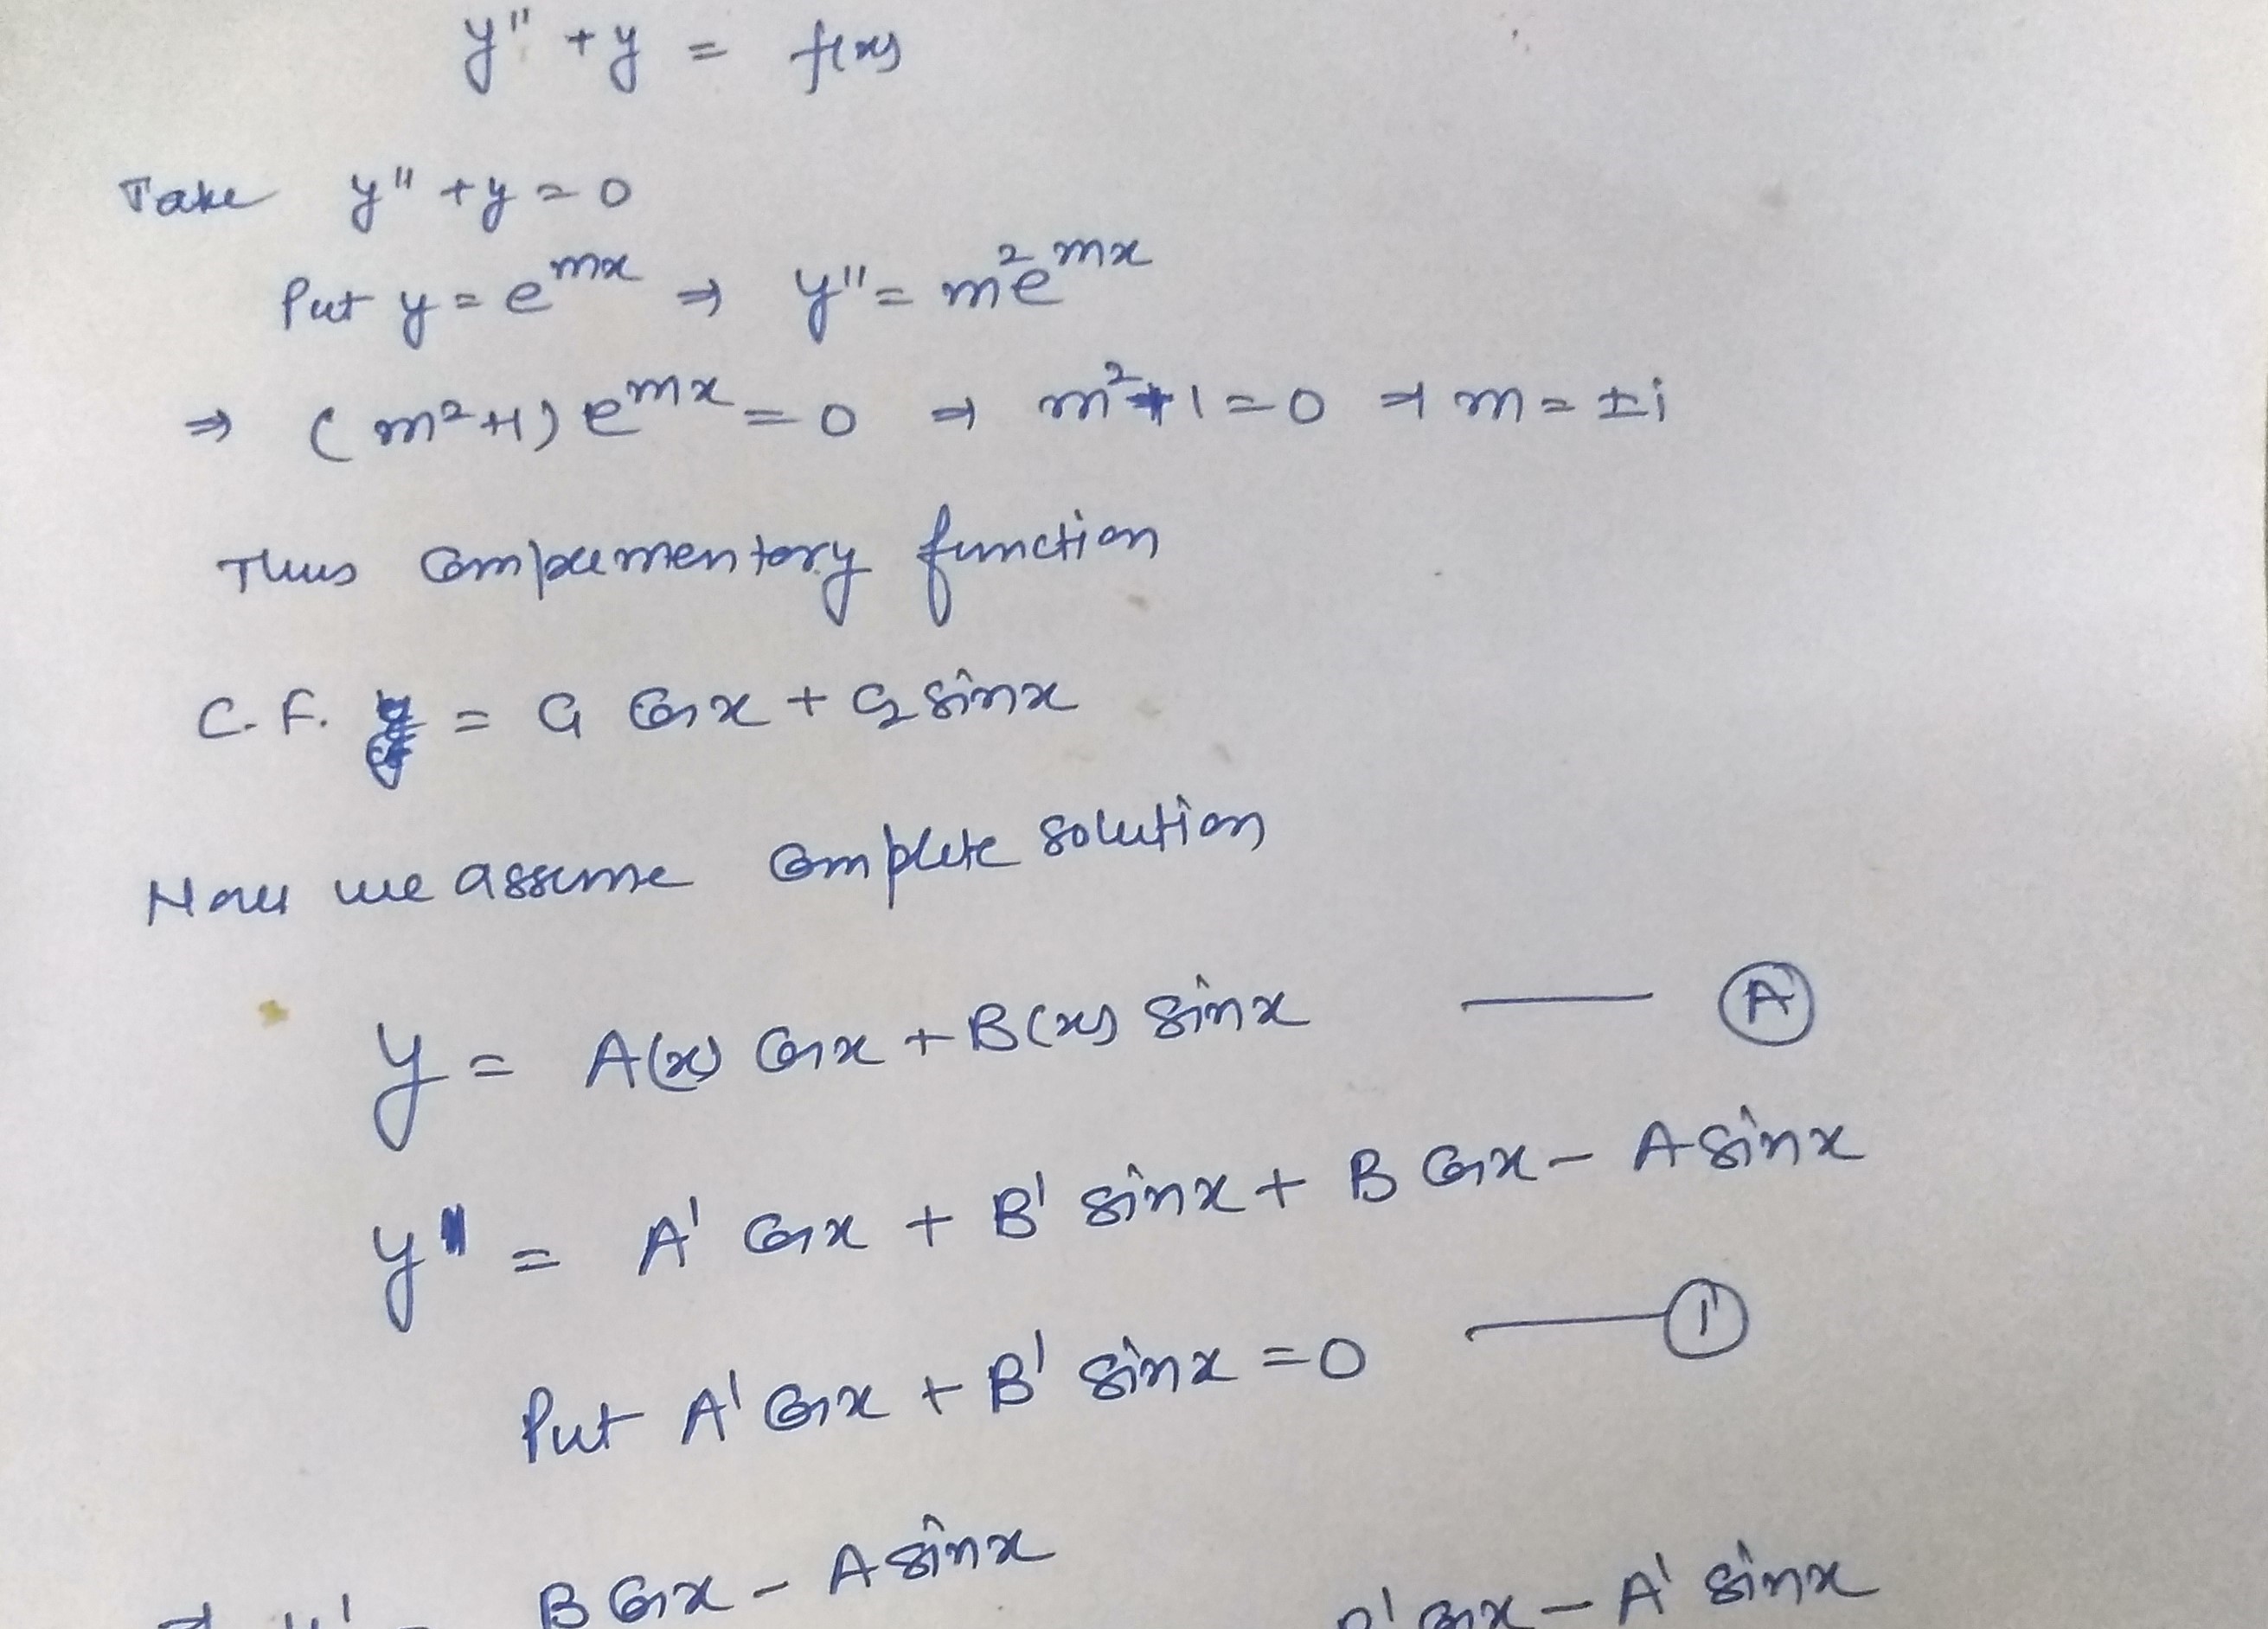 y'' + y = f(x)
Take y'' + y = 0
Put y = e^{mx} ⇒ y'' = m^2 e^{mx}
⇒ (m^2+1) e^{mx} = 0 ⇒ m^2+1 = 0 ⇒ m = ±i
Thus complementory function
C.F. = C1 Cos x + C2 sin x
Now we assume Complete solution
y = A(x) Cos x + B(x) sin x — (A)
y' = A' Cos x + B' sin x + B Cos x - A sin x
Put A' Cos x + B' sin x = 0 — (1)
B Cos x - A sin x
B' Cos x - A' sin x